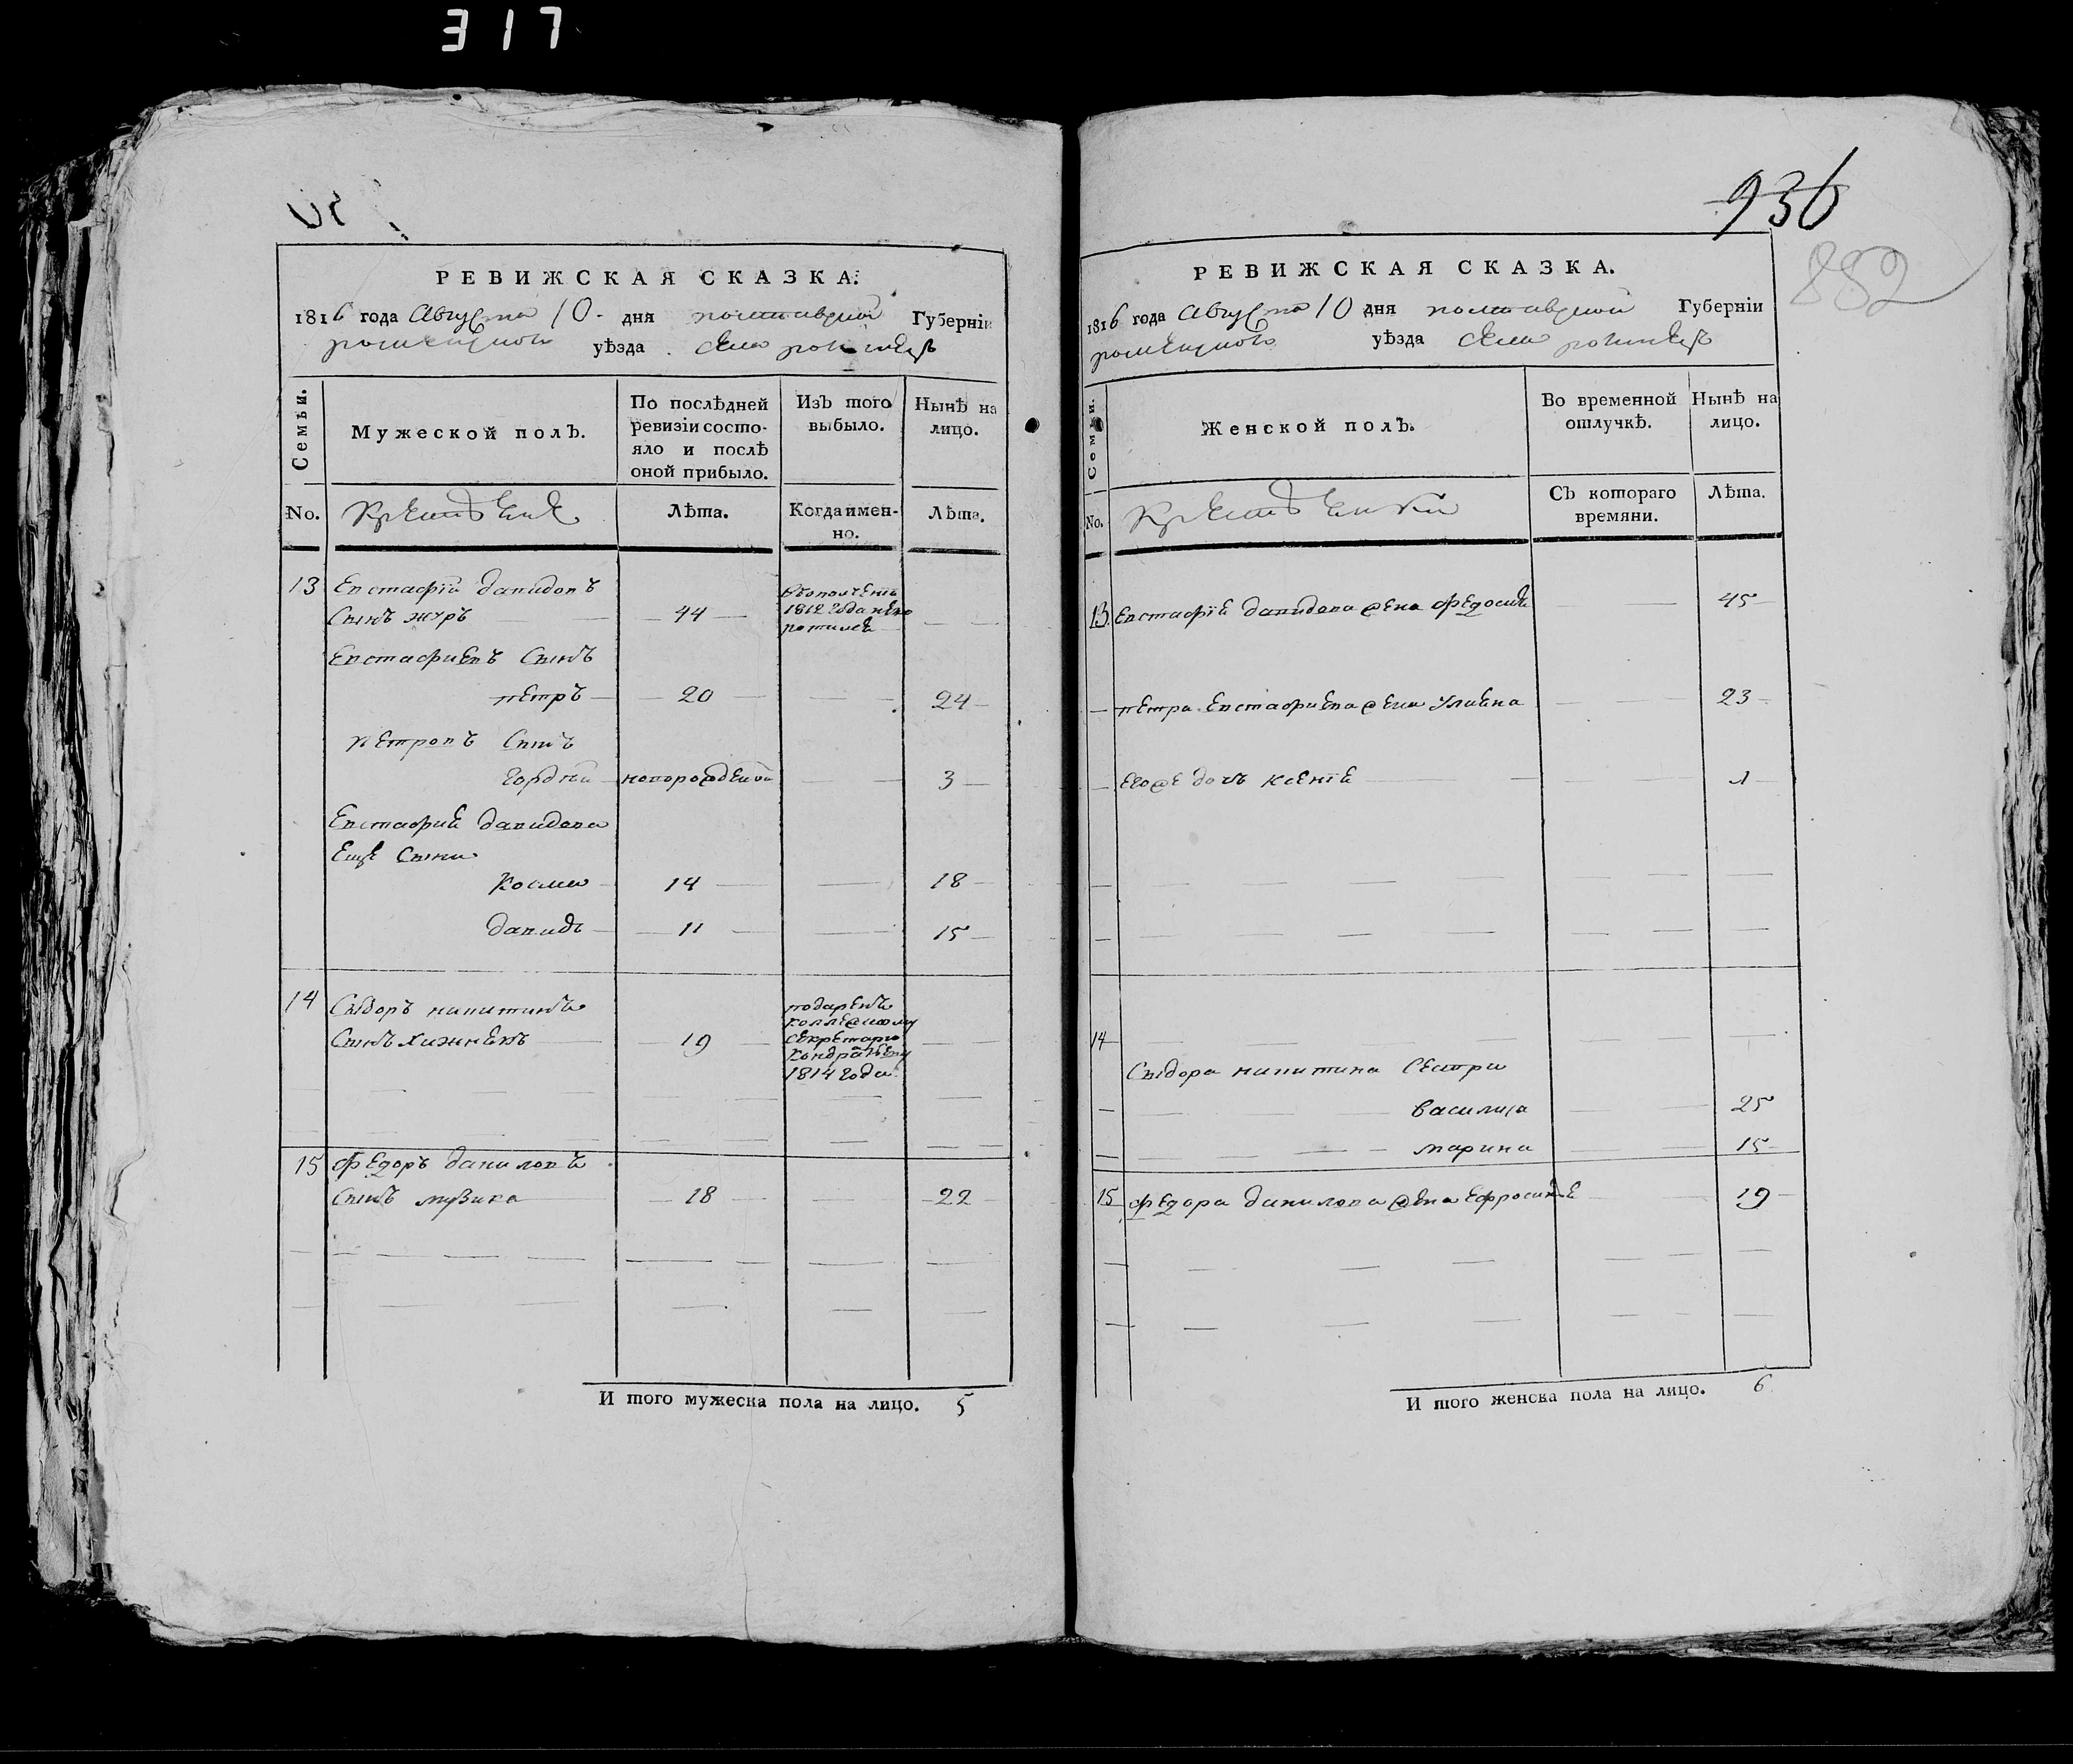 317
936
882
РЕВИЖСКАЯ СКАЗКА.
1816 года Августа 10 дня полтавской Губерніи
роменского уѣзда села
Семьи.
Мужеской полъ.
По послѣдней ревизіи состояло и послѣ оной прибыло.
Изъ того выбыло.
Нынѣ на лицо.
No.
Крестьяне
Лѣта.
Когда именно.
Лѣта.
13 Евстафій давидовъ
сынъ журъ 44
въополчение
1812 года
Евстафиевъ сынъ
петръ 20 24
петровъ сынъ
гордѣй новорожденой 3
Евстафия давидова
еще сыны
Косма 14 18
давидъ 11 15
14 Сыдоръ никитинъ
сынъ Хижнякъ 19
подаренъ
коллежскому
секретарю
1814 года
15 Федоръ даниловъ
сынъ музика 18 22
И того мужеска пола на лицо. 5
РЕВИЖСКАЯ СКАЗКА.
1816 года Августа 10 дня полтавской Губерніи
роменского уѣзда села
Семьи.
Женской полъ.
Во временной отлучкѣ.
Нынѣ на лицо.
No.
Крестьянки
Съ котораго времяни.
Лѣта.
13 Евстафія давидова жена Федосия 45
петра Евстафиева жена Улияна 23
его же дочь ксенія 1
14
Сыдора никитина сестри
василиса 25
марина 15
15 федора данилова жена Ефросиния 19
И того женска пола на лицо. 6